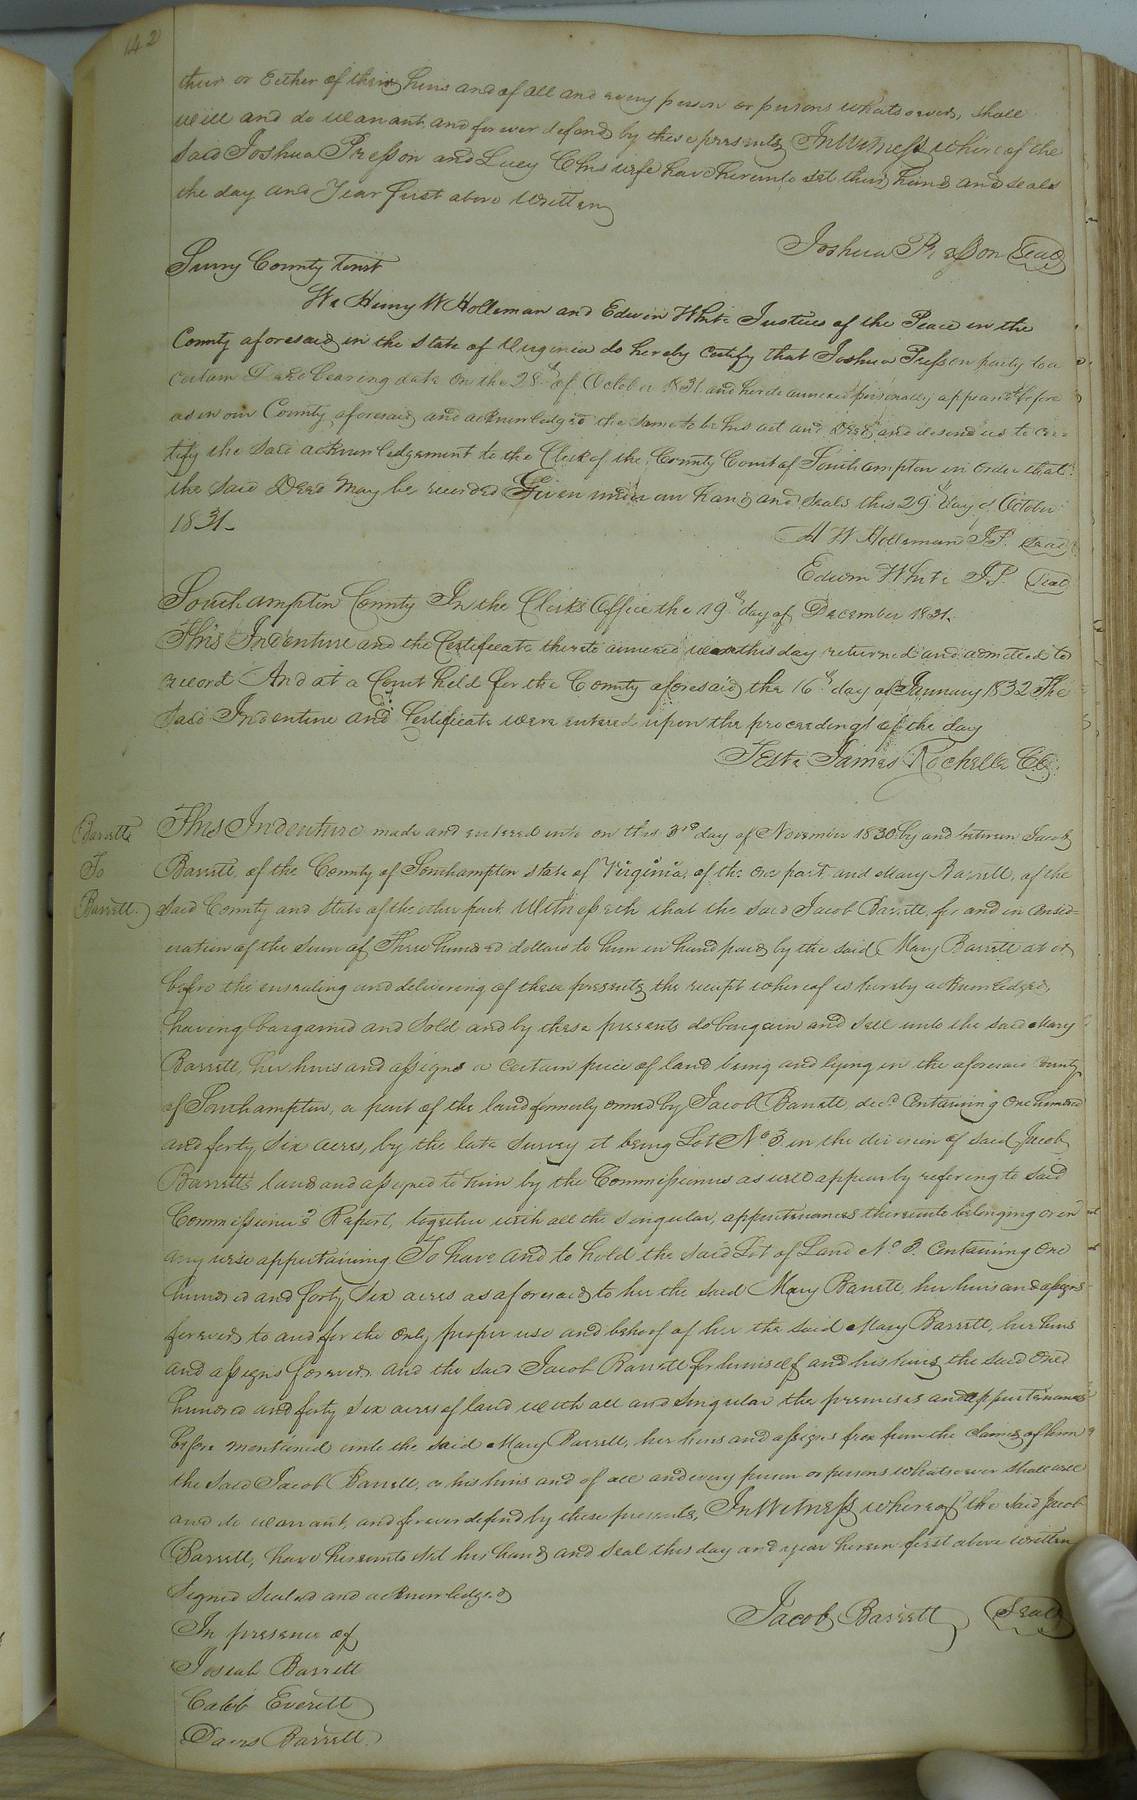 142
their or Either of their heirs and of all and every person or persons whatsoever, shall
will and do warrant and forever defend by these presents In Witness whereof the
said Joshua Presson and Lucy C his wife have hereunto set their hand and seals
the day and Year first above Written
Joshua Presson Seal
Surry County towit
We Henry W Holleman and Edwin White Justices of the Peace in the
County aforesaid in the state of Virginia do hereby Certify that Joshua Presson party to a
certain Deed bearing date on the 28th of October 1831 and hereto annexed personally appeared before
us in our County aforesaid and acknowledged the same to be his act and Deed and desired us to cer
tify the said acknowledgement to the Clerk of the County Court of Southampton in order that
the said Deed may be recorded Given under our hand and seals this 29th day of October
1831
H W Holleman J.P. Seal
Edwin White J.P. Seal
Southampton County In the Clerks Office the 19th day of December 1831.
This Indenture and the Certificate thereto annexed was this day returned and admitted to
record And at a Court held for the County aforesaid the 16th day of January 1832 The
said Indenture and Certificate were entered upon the proceedings of the day
Teste James Rochelle CC
Barrett
To
Barrett
This Indenture made and entered into on this 3rd day of November 1830 by and between Jacob
Barrett, of the County of Southampton state of Virginia, of the one part and Mary Barrett, of the
said County and state of the other part Witnesseth that the said Jacob Barrett, for and in consid=
eration of the sum of Three hundred dollars to him in hand paid by the said Mary Barrett at or
before the ensealing and delivering of these presents the receipt whereof is hereby acknowledged,
having bargained and sold and by these presents do bargain and sell unto the said Mary
Barrett, her heirs and assigns a certain piece of land being and lying in the aforesaid County
of Southampton, a part of the land formerly owned by Jacob Barrett, decd Containing One hundred
and forty six acres, by the late survey it being Lot No 3 in the division of said Jacob
Barrett's land and assigned to him by the Commissioners as will appear by refering to said
Commissioner's Report, together with all the singular, appurtenances thereunto belonging or in
any wise appertaining To have and to hold the said Lot of Land No 3. Containing One
hundred and forty six acres as aforesaid to her the said Mary Barrett, her heirs and assigns
forever, to and for the only proper use and behoof of her the said Mary Barrett, her heirs
and assigns forever. and the said Jacob Barrett for himself and his heirs the said One
hundred and forty six acres of land with all and singular the premises and appurtenances
before mentioned unto the said Mary Barrett, her heirs and assigns free from the claims of him
the said Jacob Barrett, or his heirs and of all and every person or persons whatsoever shall will
and do warrant, and forever defend by these presents, In Witness whereof the said Jacob
Barrett, have hereunto set his hand and seal this day and year herein first above written
Signed sealed and acknowledged
In presence of
Jacob Barrett Seal
Josiah Barrett
Caleb Everett
Davis Barrett